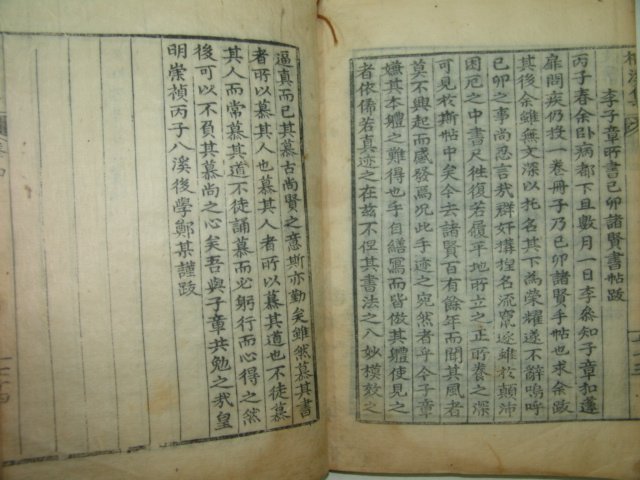 李子章所書己卯諸賢書帖跋
丙子春余卧病都下且數月一日李參知子章扣蓬
扉問疾仍投一卷冊子乃己卯諸賢手帖也求余跋
其後余雖無文深以托名其下為榮耀遂不辭嗚呼
己卯之事尚忍言哉群奸撰捏名流竄逐雖於顛沛
困厄之中書尺徃復若履平地所立之正所養之深
可見於斯帖中矣今去諸賢百有餘年而聞其風者
莫不興起而感發焉况此手迹之宛然者乎今子章
嫌其本軆之難得也手自繕寫而皆倣其軆使見之
者依俙若真迹之在玆不但其書法之入妙模效之
逼真而已其慕古尚賢之意斯亦勤矣雖然慕其書
者所以慕其人也慕其人者所以慕其道也不徒慕
其人而常慕其道不徒誦慕而必躬行而心得之然
後可以不負其慕尚之心矣吾與子章共勉之哉皇
明崇禎丙子八溪後學鄭某謹跋